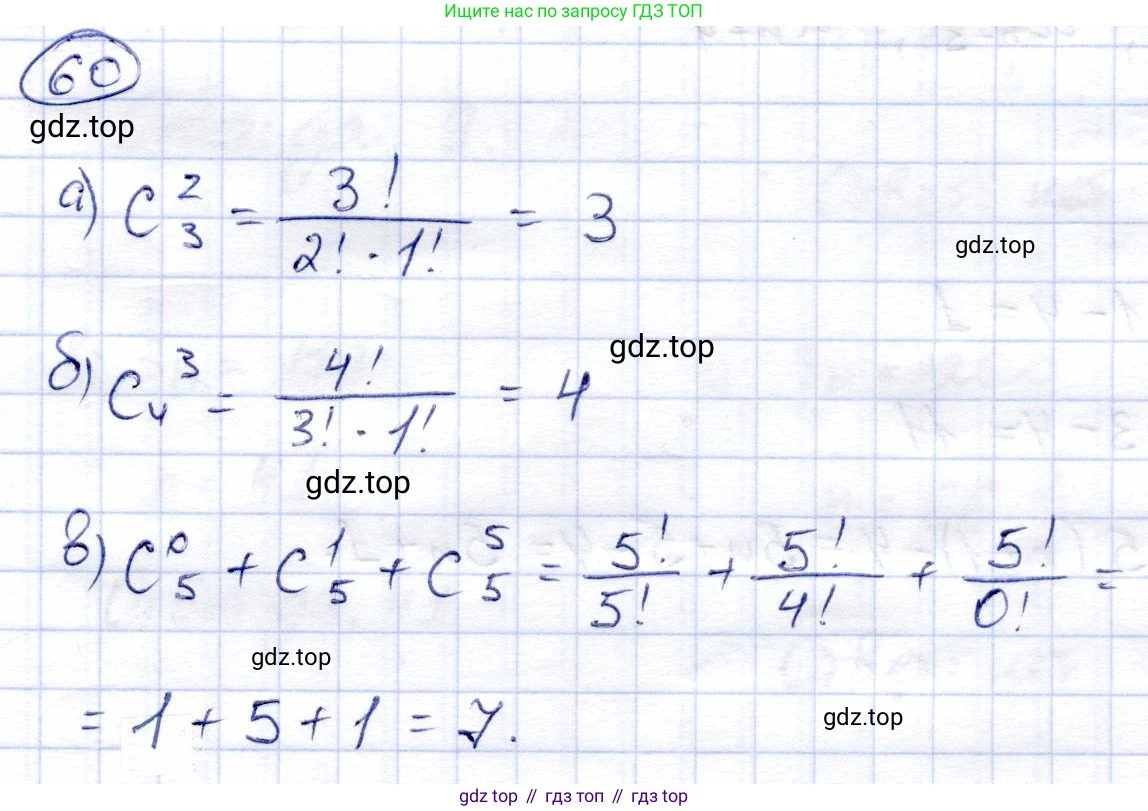 Ищите нас по запросу ГДЗ ТОП
60
gdz.top
а) C₃² = 3! / (2! · 1!) = 3
gdz.top
б) C₄³ = 4! / (3! · 1!) = 4
gdz.top
gdz.top
в) C₅⁰ + C₅¹ + C₅⁵ = 5!/5! + 5!/4! + 5!/0! =
gdz.top
= 1 + 5 + 1 = 7.
gdz.top
gdz top // гдз топ // гдз top